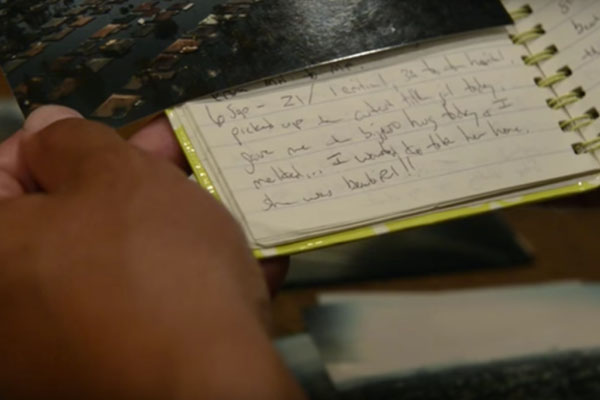 6 Sep - 21/ 1 critical, to the hospital.
picked up the cutest little girl today..
gave me the biggest hug today & I
melted... I wanted to take her home.
she was beautiful!!